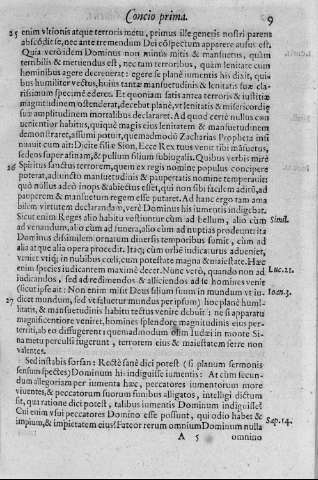 Concio prima. 9
25 enim vltionis atque terroris metu, primus ille generis nostri parens
abscōdit se, nec ante tremendum Dei cōspectum apparere ausus est.
Quia verò idem Dominus non minùs mitis & mansuetus, quàm
terribilis & metuendus est, nec tam terroribus, quàm lenitate cum
hominibus agere decreuerat: egere se planè iumentis his dixit, qui
bus humiliter vectus, huius tantæ mansuetudinis & lenitatis suæ cla-
rissimum specimē ederet. Et quoniam satis antea terroris & iustitiæ
magnitudinem ostenderat, decebat planè, vt lenitatis & misericordię
suæ amplitudinem mortalibus declararet. Ad quod certè nullus con
uenientior habitus, quíque magis eius lenitatem & mansuetudinem
demonstraret, assumi potuit, quem admodū Zacharias Propheta insi
nuauit cum ait: Dicite filiæ Sion, Ecce Rex tuus venit tibi māsuetus,
sedens super asinam, & pullum filium subiugalis. Quibus verbis mirè
26 Spiritus sanctus terrorem, quem ex regis nomine populus concipere
poterat, adiuncto mansuetudinis & paupertatis nomine temperauit:
quò nullus adeò inops & abiectus esset, qui non sibi facilem aditū, ad
pauperem & mansuetum regem esse putaret. Ad hanc ergo tam ama
bilem virtutem declarandam, verè Dominus his iumentis indigebat.
Sicut enim Reges alio habitu vestiuntur cùm ad bellum, alio cùm Simil.
ad venandum, alio cùm ad funera, alio cùm ad nuptias prodeunt: ita
Dominus dissimilem ornatum diuersis temporibus sumit, cùm ad
alia atque alia opera procedit. Itaq; cùm orbē iudicaturus adueniet,
veniet vtiq; in nubibus cœli, cum potestate magna & maiestate. Hæc
enim species iudicantem maximè decet. Nunc verò, quando non ad Luc.21.
iudicandos, sed ad redimendos & alliciendos ad se homines venit
(sicut ipse ait: Non enim misit Deus filium suum in mundum vt iu Ioan.3.
27 dicet mundum, sed vt saluetur mundus per ipsum) hoc planè humi-
litatis, & mansuetudinis habitu tectus venire debuit: ne si apparatu
magnificentiore veniret, homines splendore magnitudinis eius per-
territi, ab eo diffugerent: quemadmodum olim Iudæi in monte Si-
na metu perculsi fugerunt, terrorem eius & maiestatem ferre non
valentes.
Sed instabis forsan: Rectè sanè dici potest (si planum sermonis
sensum spectes) Dominum his indiguisse iumentis: At cùm secun-
dum allegoriam per iumenta hæc, peccatores iumentorum more
viuentes, & peccatorum suorum funibus alligatos, intelligi dictum
sit, qua ratione dici potest, talibus iumentis Dominum indiguisse?
Cui enim vsui peccatores Domino esse possunt, qui odio habet &
impium, & impietatem eius? Fateor rerum omnium Dominum nulla Sap.14.
A 5 omnino